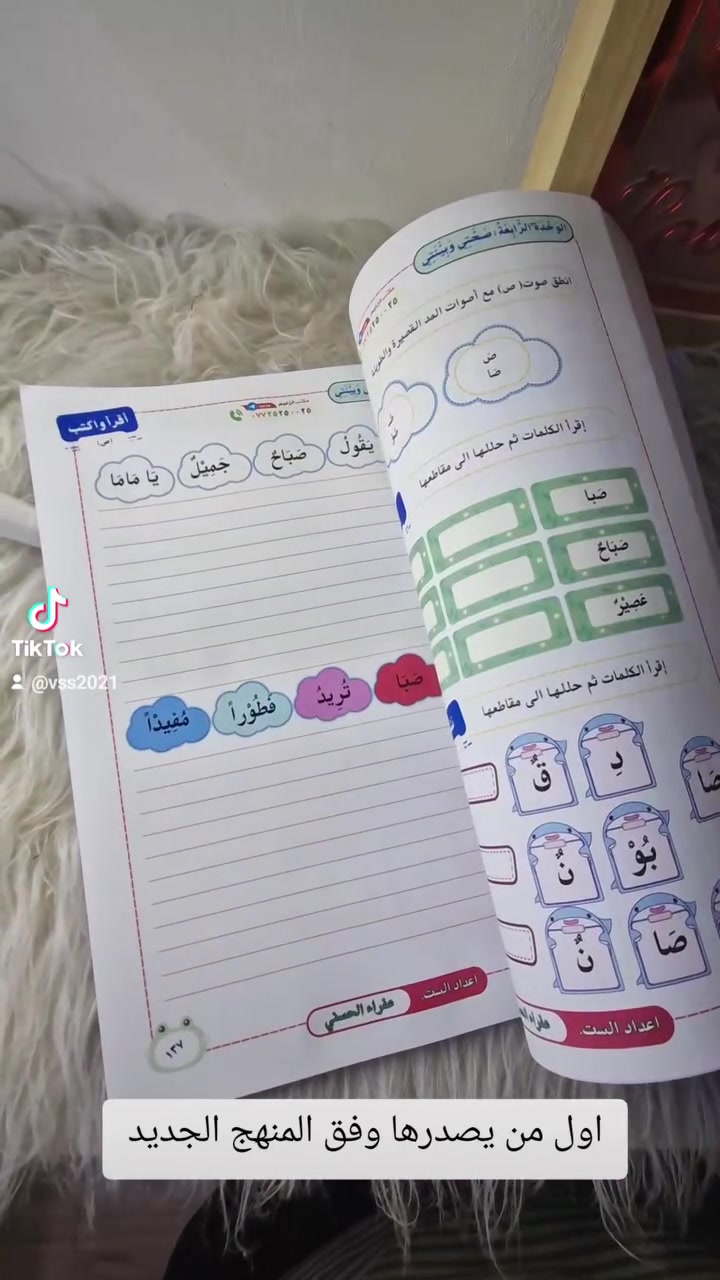 الوحدة الرابعة: صحتي وبيئتي
انطق صوت( ص) مع أصوات المد القصيرة والطويلة
صَ
صَا
إقرأ الكلمات ثم حللها الى مقاطعها
صَبا
صَبَاحٌ
عَصِيْرٌ
إقرأ الكلمات ثم حللها الى مقاطعها
دِ قٌ
صَا بُوْ نٌ
صَا نٌ
اعداد الست.
أقرأ واكتب
(ص)
مكتب الزعيم
٠٧٧٢٥٢٥٠٠٢٥
يَقُولُ صَبَاحٌ جَمِيْلٌ يَا مَامَا
صَبَا تُرِيدُ فَطُوْراً مُفِيْداً
اعداد الست. عفراء الحسني
١٣٧
TikTok
@vss2021
اول من يصدرها وفق المنهج الجديد